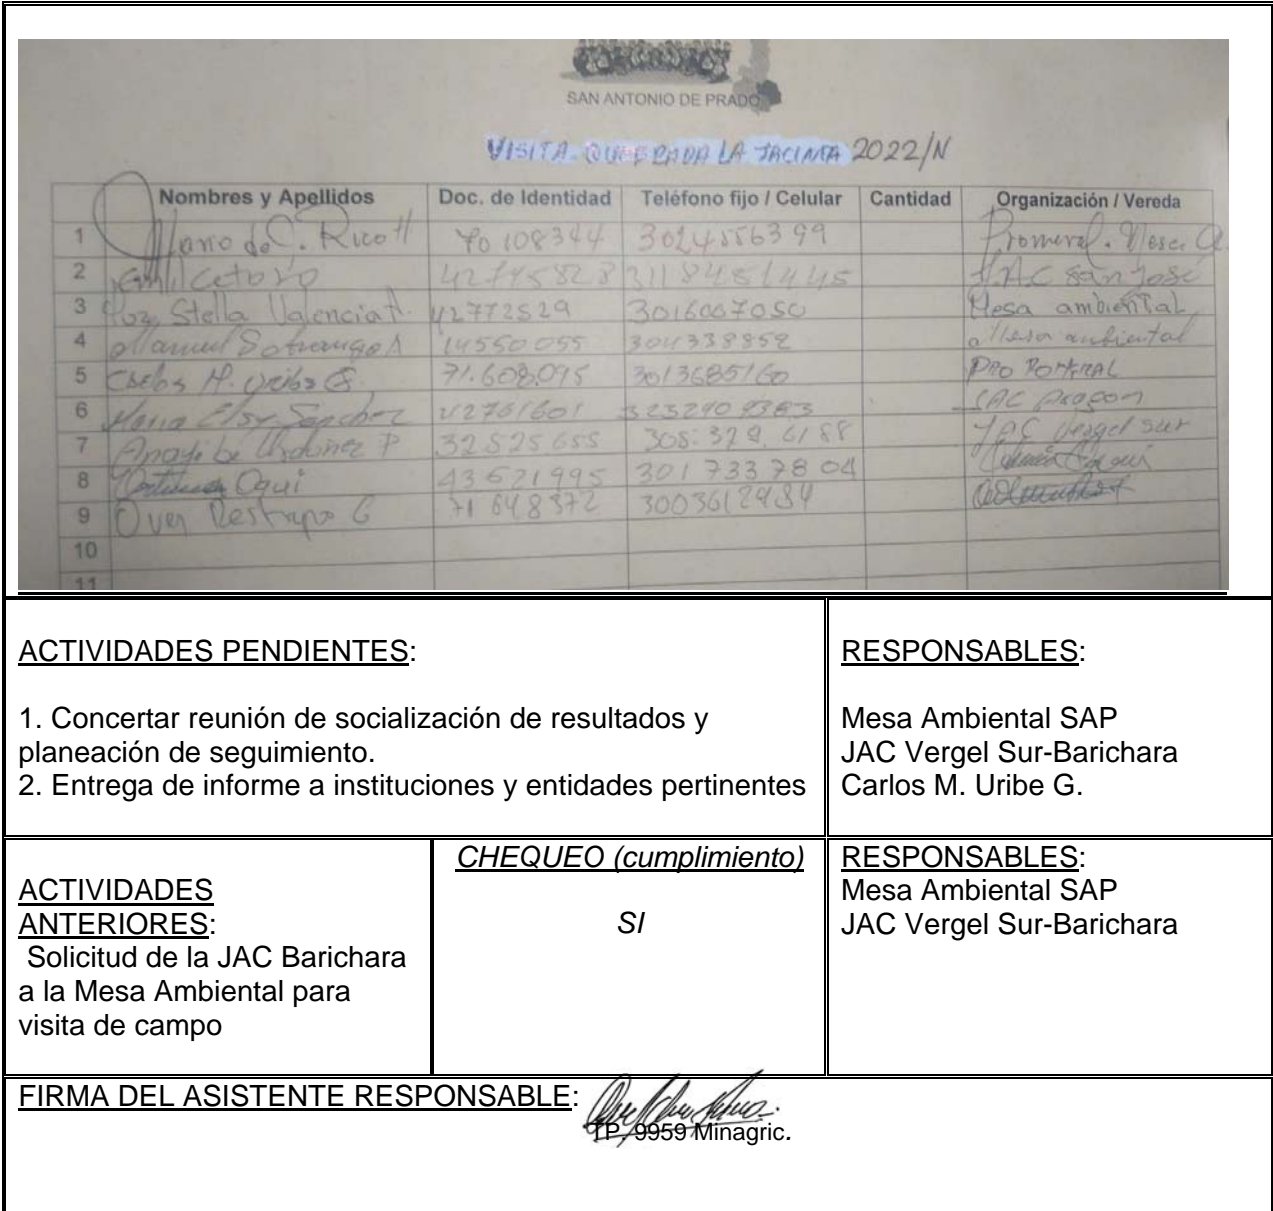 SAN ANTONIO DE PRADO
VISITA QUEBRADA LA JACINTA 2022/N
Nombres y Apellidos Doc. de Identidad Teléfono fijo / Celular Cantidad Organización / Vereda
1 C. Rico H 70108344
2 J.A.C San José
3 Luz Stella Valencia 42772529 3016007050 Mesa ambiental
4 Manuel 14550055 304338852 Mesa ambiental
5 Carlos M. Uribe G. 71.608.095 3013685160 PRO ROMERAL
6 Maria Elsy Sanchez 42761601 JAC Aragon
7 Ordoñez P 32525655 305 329 6188 JAC Vergel sur
8 43621995 301 733 78 04
9 Restrepo G 71 648372 3003612484
10
11
ACTIVIDADES PENDIENTES:
1. Concertar reunión de socialización de resultados y
planeación de seguimiento.
2. Entrega de informe a instituciones y entidades pertinentes
RESPONSABLES:
Mesa Ambiental SAP
JAC Vergel Sur-Barichara
Carlos M. Uribe G.
ACTIVIDADES
ANTERIORES:
Solicitud de la JAC Barichara
a la Mesa Ambiental para
visita de campo
CHEQUEO (cumplimiento)
SI
RESPONSABLES:
Mesa Ambiental SAP
JAC Vergel Sur-Barichara
FIRMA DEL ASISTENTE RESPONSABLE:
TP. 9959 Minagric.